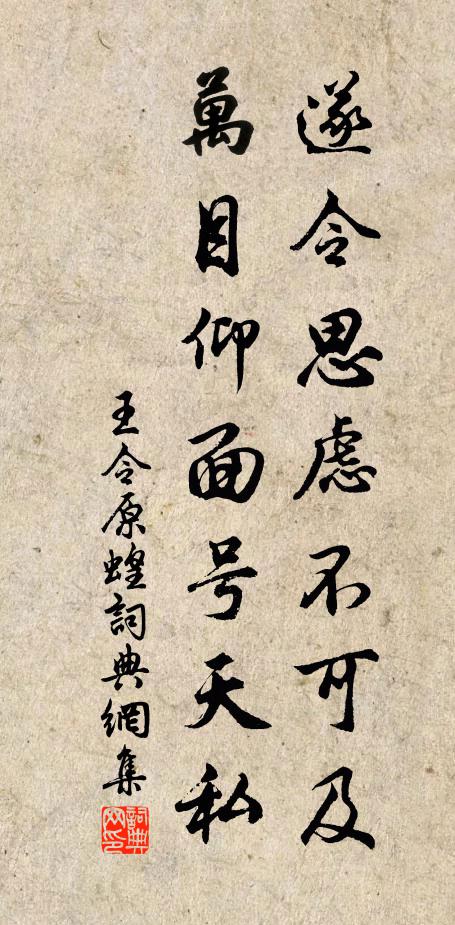 遂令思慮不可及
萬目仰面号天私
王令原蝗詞典網集
詞典网印